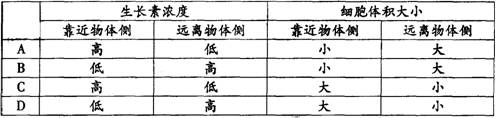 生长素浓度 细胞体积大小
靠近物体侧 远离物体侧 靠近物体侧 远离物体侧
A 高 低 小 大
B 低 高 小 大
C 高 低 大 小
D 低 高 大 小